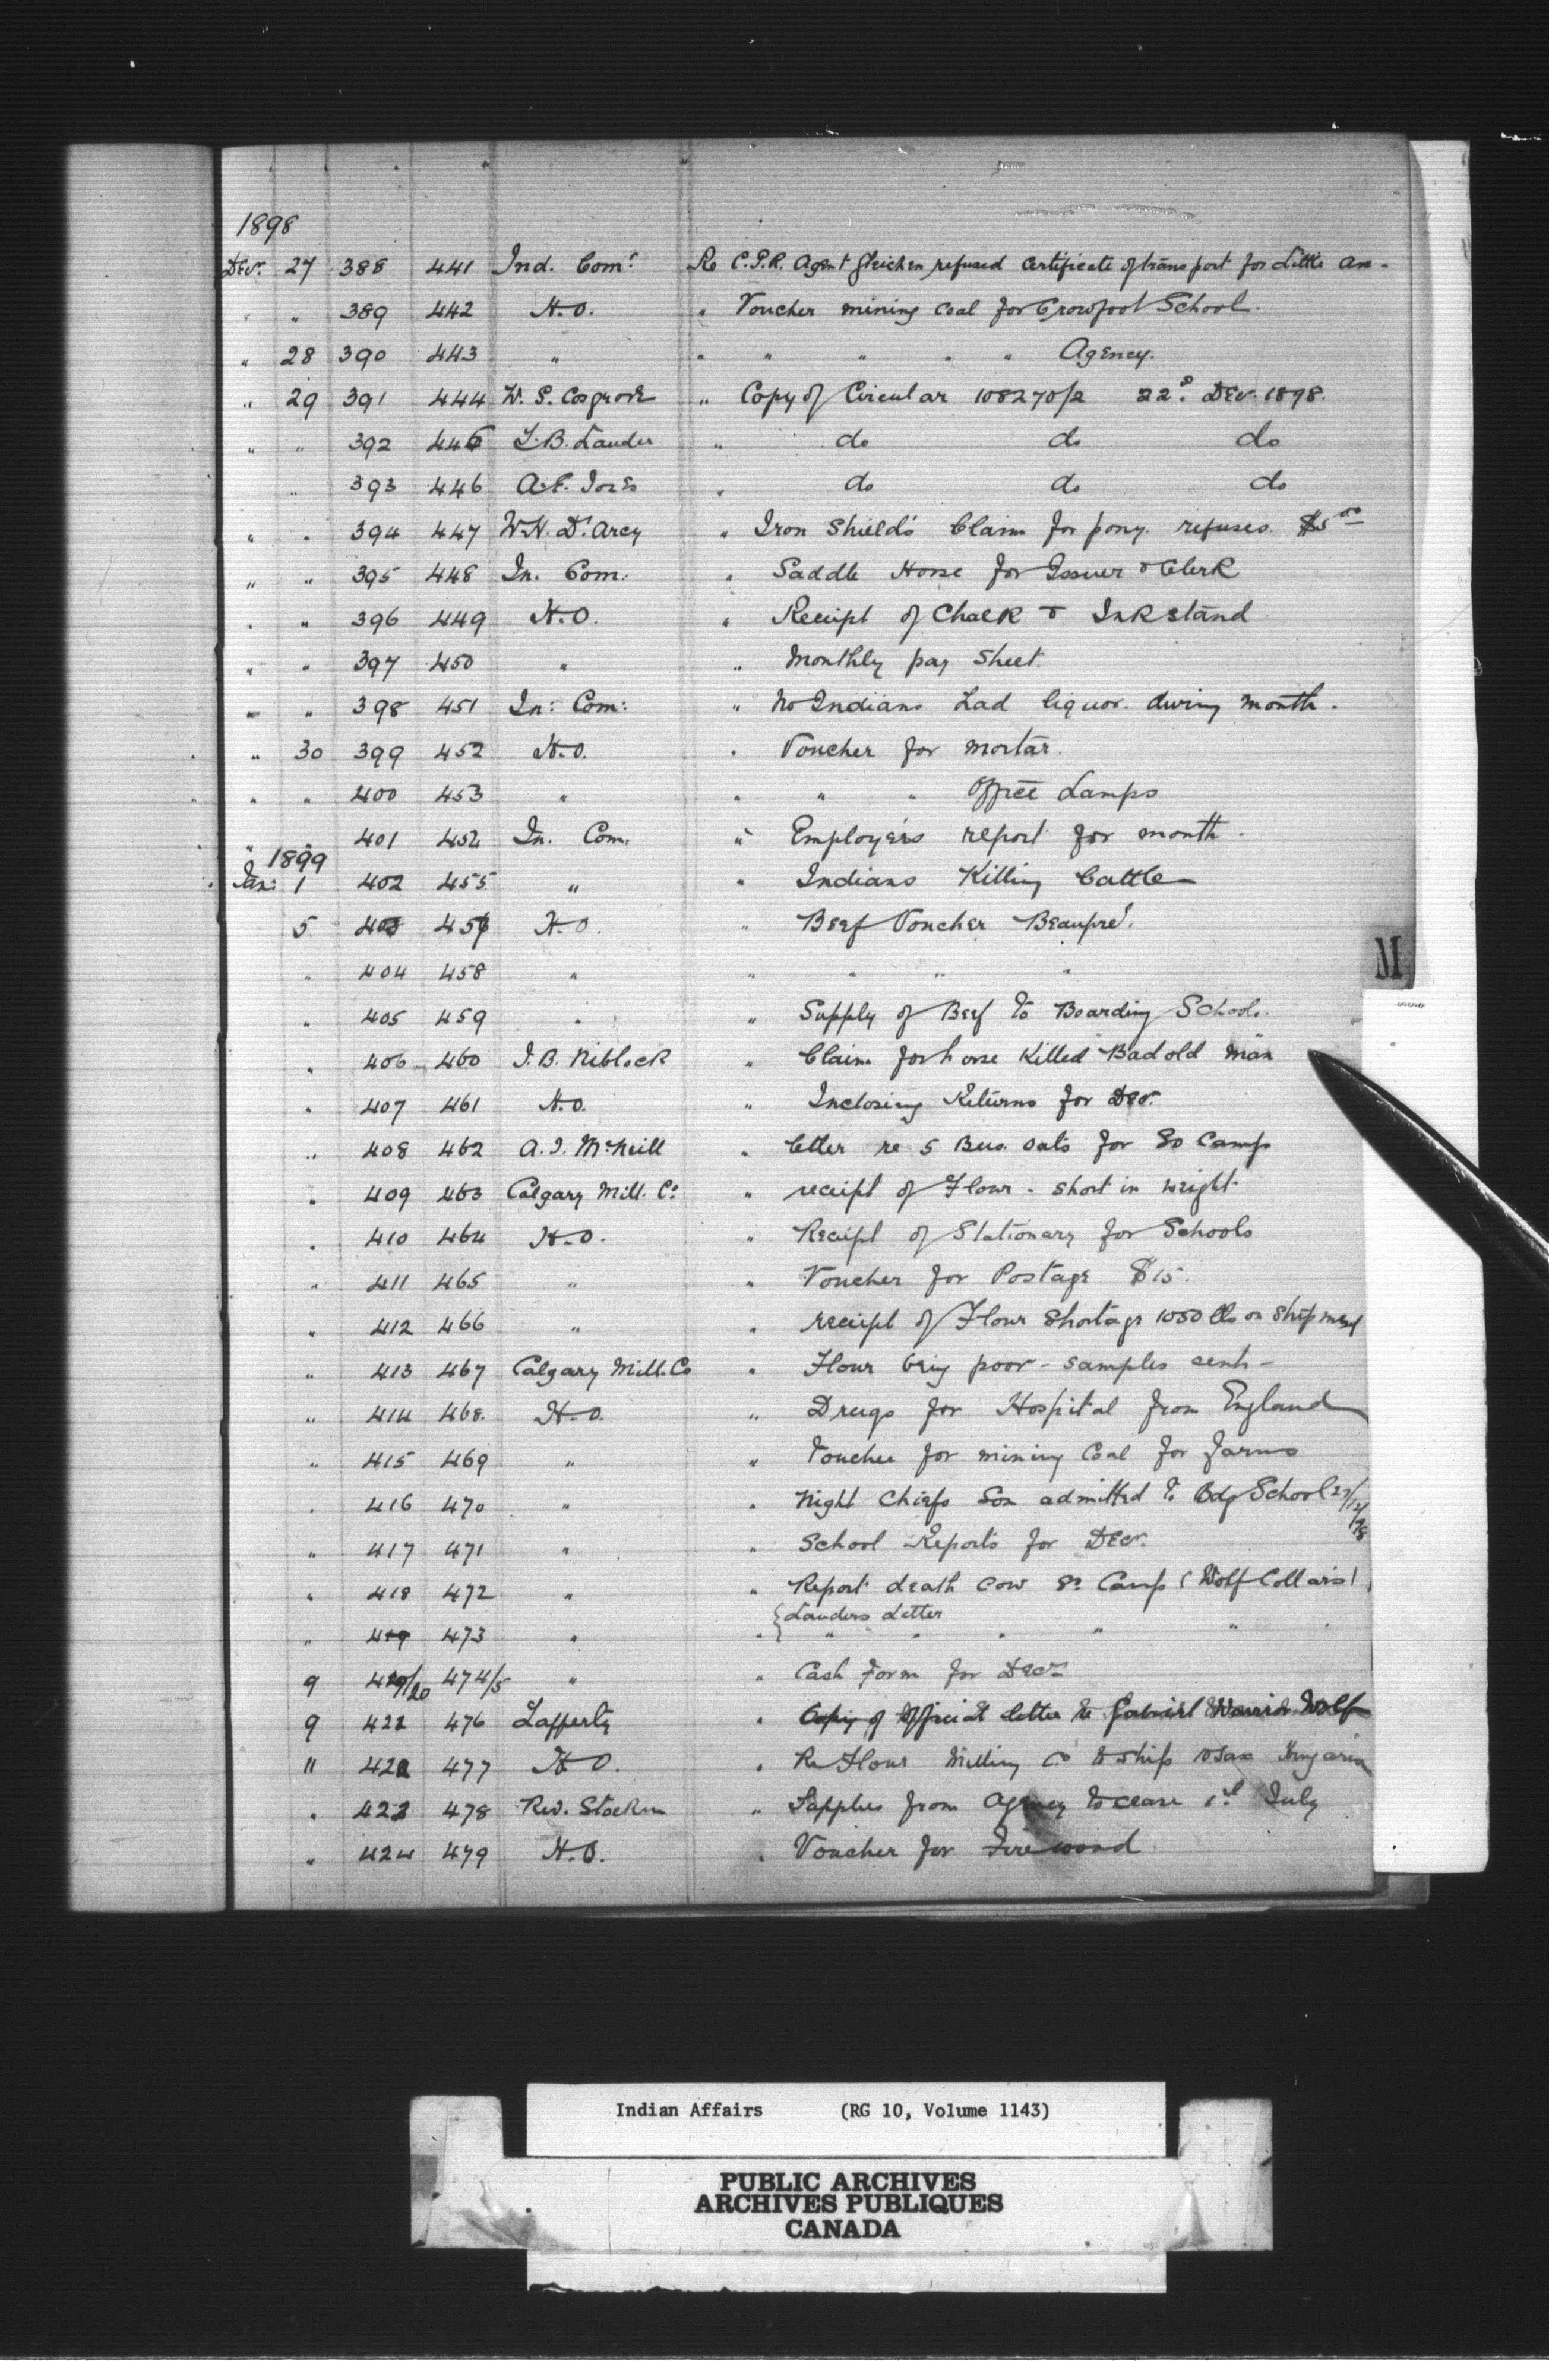 1898
Decr. 27 388 441 Ind. Comr Re C.P.R. Agent Gleichen refused certificate of transport for Little Axe -
" " 389 442 H.O. " Voucher mining coal for Crowfoot School.
" 28 390 443 " " " " " " Agency.
" 29 391 444 W. S. Cosgrove " Copy of Circular 108270/2 22d Decr. 1898.
" " 392 445 L. B. Lauder " do do do
" 393 446 A. E. Jones " do do do
" " 394 447 W. H. D'Arcy " Iron Shield's Claim for pony. refuses $5 00
" " 395 448 In. Com. " Saddle Horse for Issuer & Clerk
" " 396 449 H.O. " Receipt of Chalk & Inkstand
" " 397 450 " " Monthly pay Sheet.
" " 398 451 In: Com: " No Indians had liquor during month.
" 30 399 452 H.O. " Voucher for mortar.
" " 400 453 " " " " Office Lamps
" " 401 454 In. Com. " Employees report for month.
1899
Jan: 1 402 455 " " Indians Killing Cattle
5 403 457 H.O. " Beef Voucher Beaupré.
" 404 458 " " " " "
" 405 459 " " Supply of Beef to Boarding School.
" 406 460 J. B. Niblock " Claim for horse Killed Bad old Man
" 407 461 H.O. " Inclosing Returns for Decr.
" 408 462 A. J. McNeill " letter re 5 Bus. oats for So Camp
" 409 463 Calgary Mill. Co " receipt of Flour - short in weight
" 410 464 H.O. " Receipt of Stationary for Schools
" 411 465 " " Voucher for Postage $15.
" 412 466 " " receipt of Flour Shortage 1050 lbs on shipment
" 413 467 Calgary Mill. Co " Flour being poor - samples sent -
" 414 468. H.O. " Drugs for Hospital from England
" 415 469 " " Voucher for mining Coal for farms
" 416 470 " " Night Chiefs Son admitted to Bdg School 27/12/98
" 417 471 " " School Reports for Decr.
" 418 472 " " Report death cow So Camp (Wolf Collars)
{Lauders Letter
" 419 473 " " " " " " "
9 419/20 474/5 " " Cash Form for Decr
9 421 476 Lafferty " Copy of Official letter to Gabriel Warrior Wolf
11 422 477 H.O. " Re Flour Milling Co to ship
" 423 478 Rev. Stocken " Supplies from Agency to cease 1st July
" 424 479 H.O. " Voucher for Firewood
M
Indian Affairs (RG 10, Volume 1143)
PUBLIC ARCHIVES
ARCHIVES PUBLIQUES
CANADA